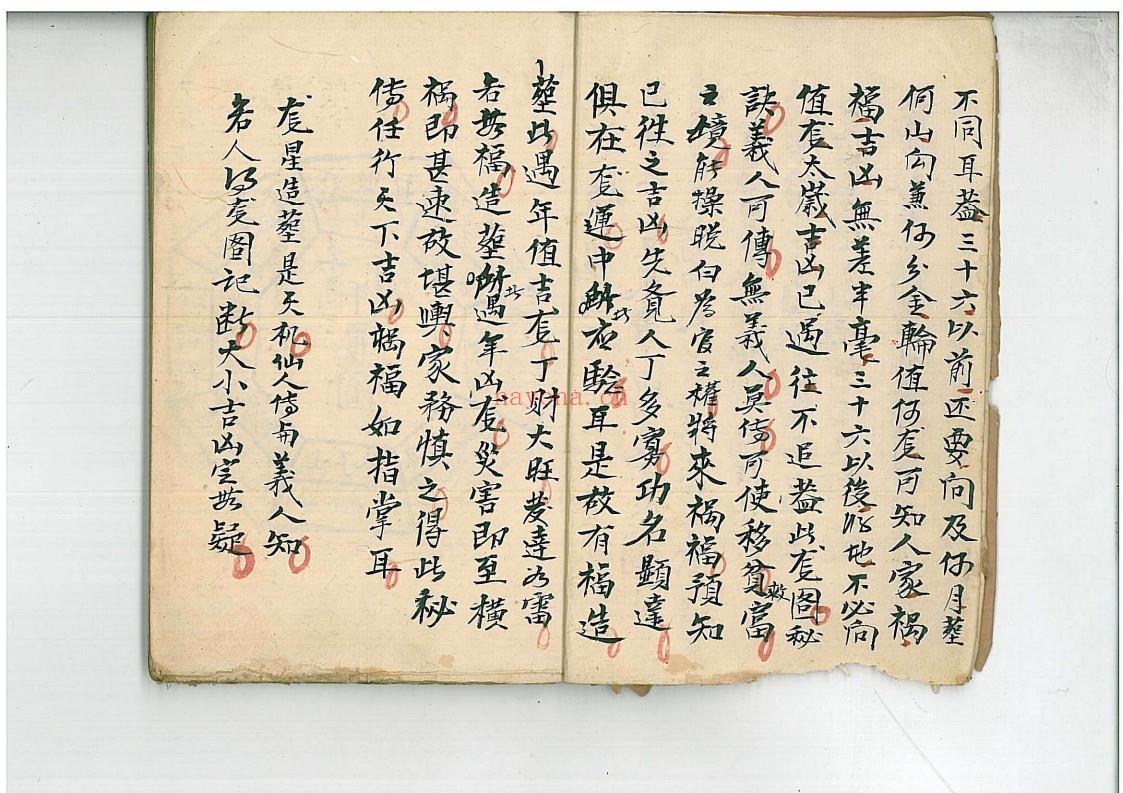 不同耳葢三十六以前还要问及何月塟
何山向兼何分金輪值何龙可知人家禍
福吉凶無差半毫三十六以後 地不必向
值龙太歲吉凶已過往不追葢此龙圖秘
訣義人可傳無義人莫傳可使移貧救富
之境能操脱白為官之權將來禍福預知
已往之吉凶先覔人丁多寡功名顯達
俱在龙運中所应驗耳是故有福造
塟此遇年值吉龙丁财大旺發達如雷
若無福造塟所遇年凶龙災害即至橫
禍即甚速故堪輿家務慎之得此秘
传任行天下吉凶禍福如指掌耳
龙星造塟是天机仙人传与義人知
若人得龙圖記断大小吉凶定無疑
hayona.cn